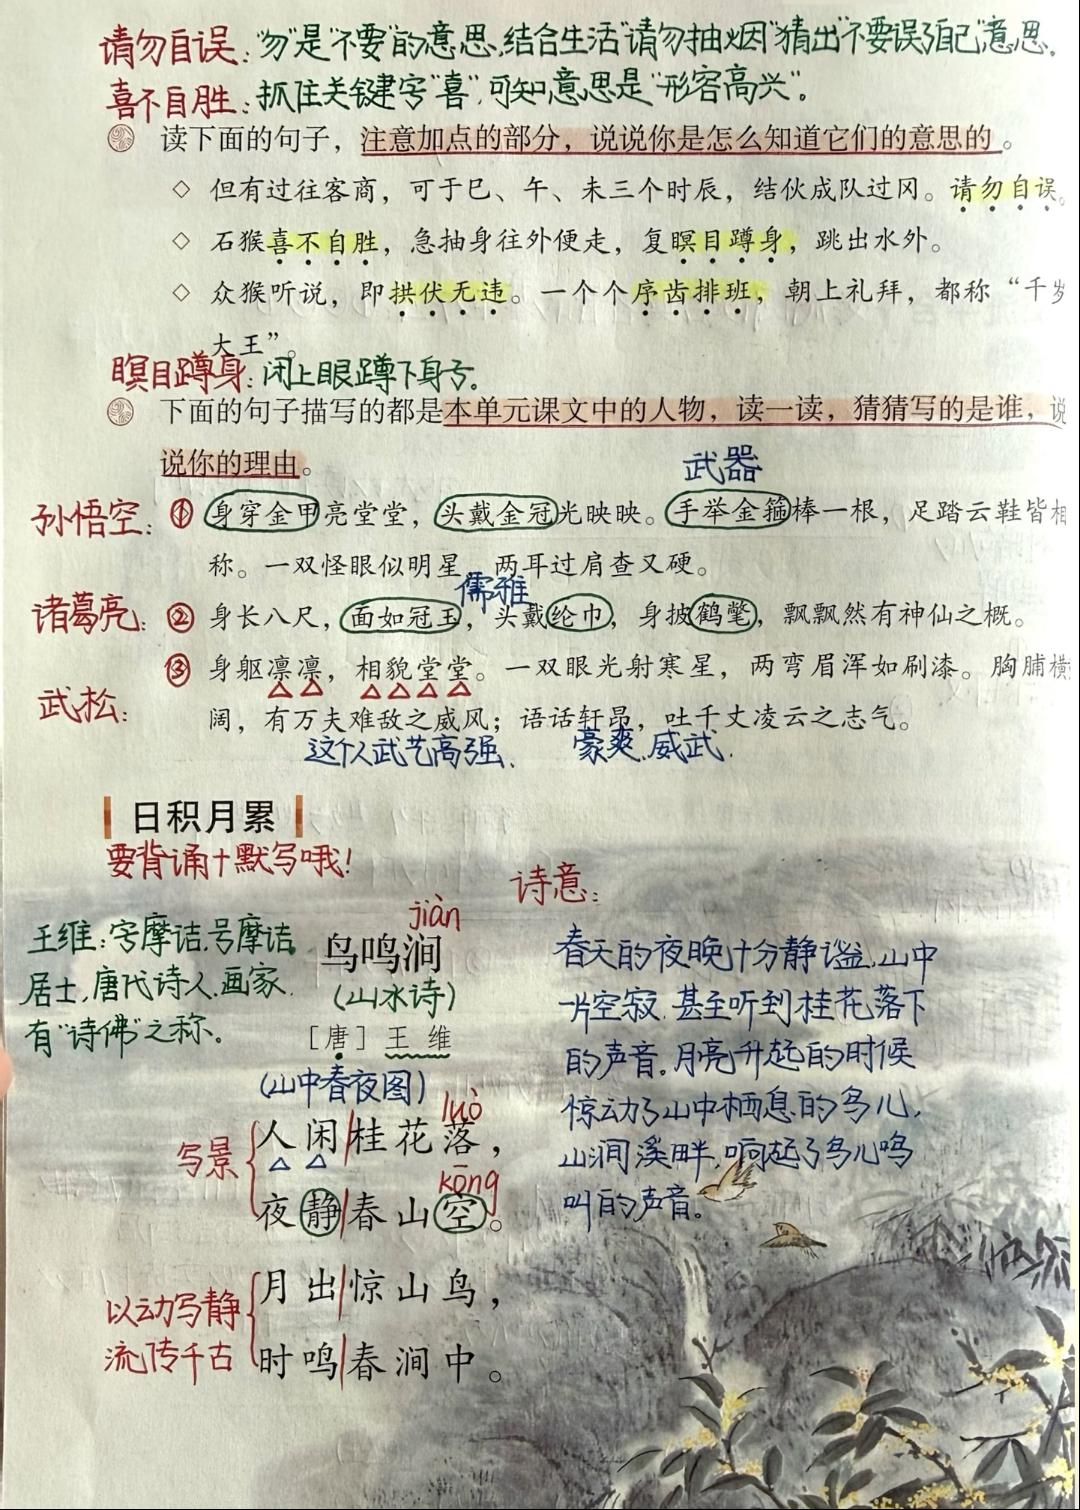 请勿自误:“勿”是“不要”的意思,结合生活“请勿抽烟”猜出“不要误了自己”意思。
喜不自胜:抓住关键字“喜”,可知意思是“形容高兴”。
读下面的句子，注意加点的部分，说说你是怎么知道它们的意思的。
◇ 但有过往客商，可于巳、午、未三个时辰，结伙成队过冈。请勿自误。
◇ 石猴喜不自胜，急抽身往外便走，复瞑目蹲身，跳出水外。
◇ 众猴听说，即拱伏无违。一个个序齿排班，朝上礼拜，都称“千岁
大王”。
瞑目蹲身:闭上眼蹲下身子。
下面的句子描写的都是本单元课文中的人物，读一读，猜猜写的是谁，说
说你的理由。
武器
孙悟空: ① 身穿金甲亮堂堂，头戴金冠光映映。手举金箍棒一根，足踏云鞋皆相
称。一双怪眼似明星，两耳过肩查又硬。
儒雅
诸葛亮: ② 身长八尺，面如冠玉，头戴纶巾，身披鹤氅，飘飘然有神仙之概。
③ 身躯凛凛，相貌堂堂。一双眼光射寒星，两弯眉浑如刷漆。胸脯横
武松:
阔，有万夫难敌之威风；语话轩昂，吐千丈凌云之志气。
这个人武艺高强、 豪爽.威武.
日积月累
要背诵+默写哦!
诗意:
jiàn
王维:字摩诘,号摩诘
居士,唐代诗人.画家.
有“诗佛”之称。
鸟鸣涧
(山水诗)
［唐］王 维
(山中春夜图)
luò
写景
人闲桂花落，
kōng
夜静春山空。
以动写静
流传千古
月出惊山鸟，
时鸣春涧中。
春天的夜晚十分静谧,山中
一片空寂.甚至听到桂花落下
的声音。月亮升起的时候
惊动了山中栖息的鸟儿,
山涧溪畔,响起了鸟儿鸣
叫的声音。